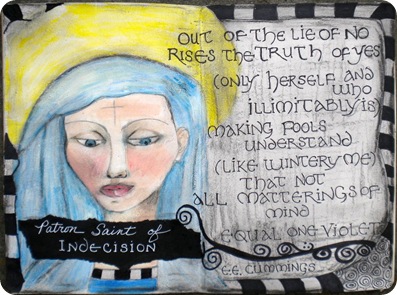 OUT OF THE LIE OF NO
RISES THE TRUTH OF YES
(ONLY HERSELF AND
WHO
ILLIMITABLY IS)
MAKING FOOLS
UNDERSTAND
(LIKE WINTERY ME)
THAT NOT
ALL MATTERINGS OF
MIND
EQUAL ONE VIOLET
E.E. CUMMINGS
Patron Saint of
INDE-CISION